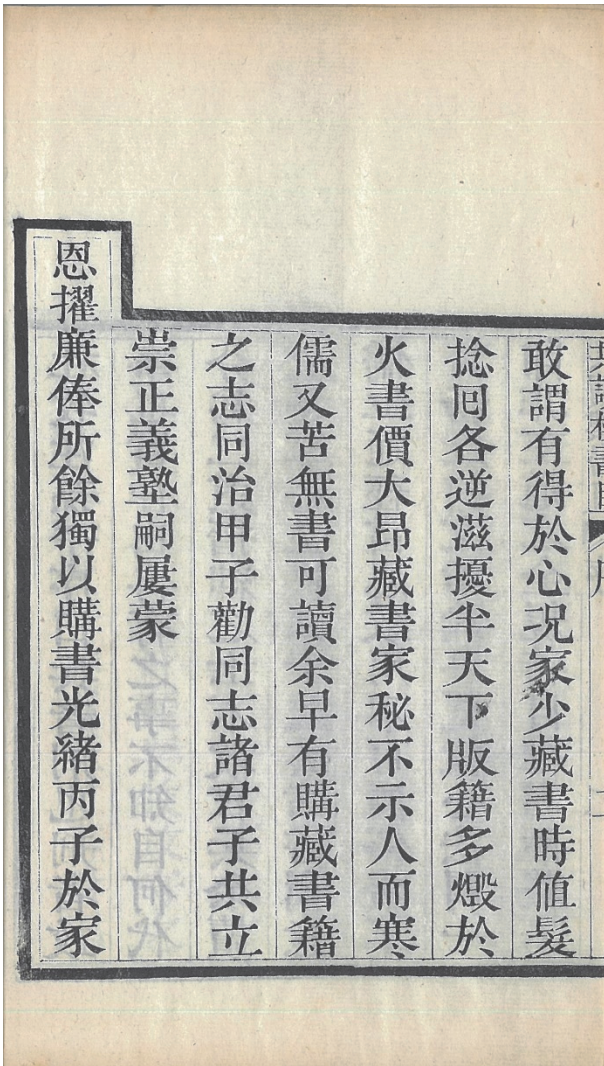 共讀樓書目 序
敢謂有得於心况家少藏書時值髮
捻囘各逆滋擾半天下版籍多燬於
火書價大昂藏書家秘不示人而寒
儒又苦無書可讀余早有購藏書籍
之志同治甲子勸同志諸君子共立
崇正義塾嗣屢蒙
恩擢廉俸所餘獨以購書光緒丙子於家